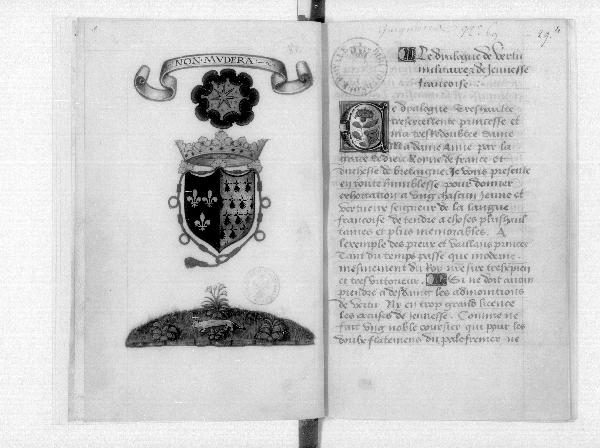 NON MVDERA
Le dialogue de vertu
militaire et de Jeunesse
francoise
Ce dyalogue Treshaulte
tresexcellente princesse et
ma tresredoubtee Dame
Madame Anne par la
grace de dieu Royne de france et
duchesse de bretaigne. Je vous presente
en toute humblesse pour donner
exhortacion a ung chascun Jeune et
vertueux seigneur de la langue
francoise de tendre a choses plushaul
taines et plus memorables. A
lexemple des preux et vaillans princes
Tant du temps passe que moderne
mesmement du Roy nre sire treschrestien
et tres victorieux. Si ne doit aucun
prendre a desdaing les admonicions
de vertu Ny en trop grand licence
les excuses de jeunesse. Comme ne
fait ung noble coursier qui pour les
doulx flatemens du palefrenier ne